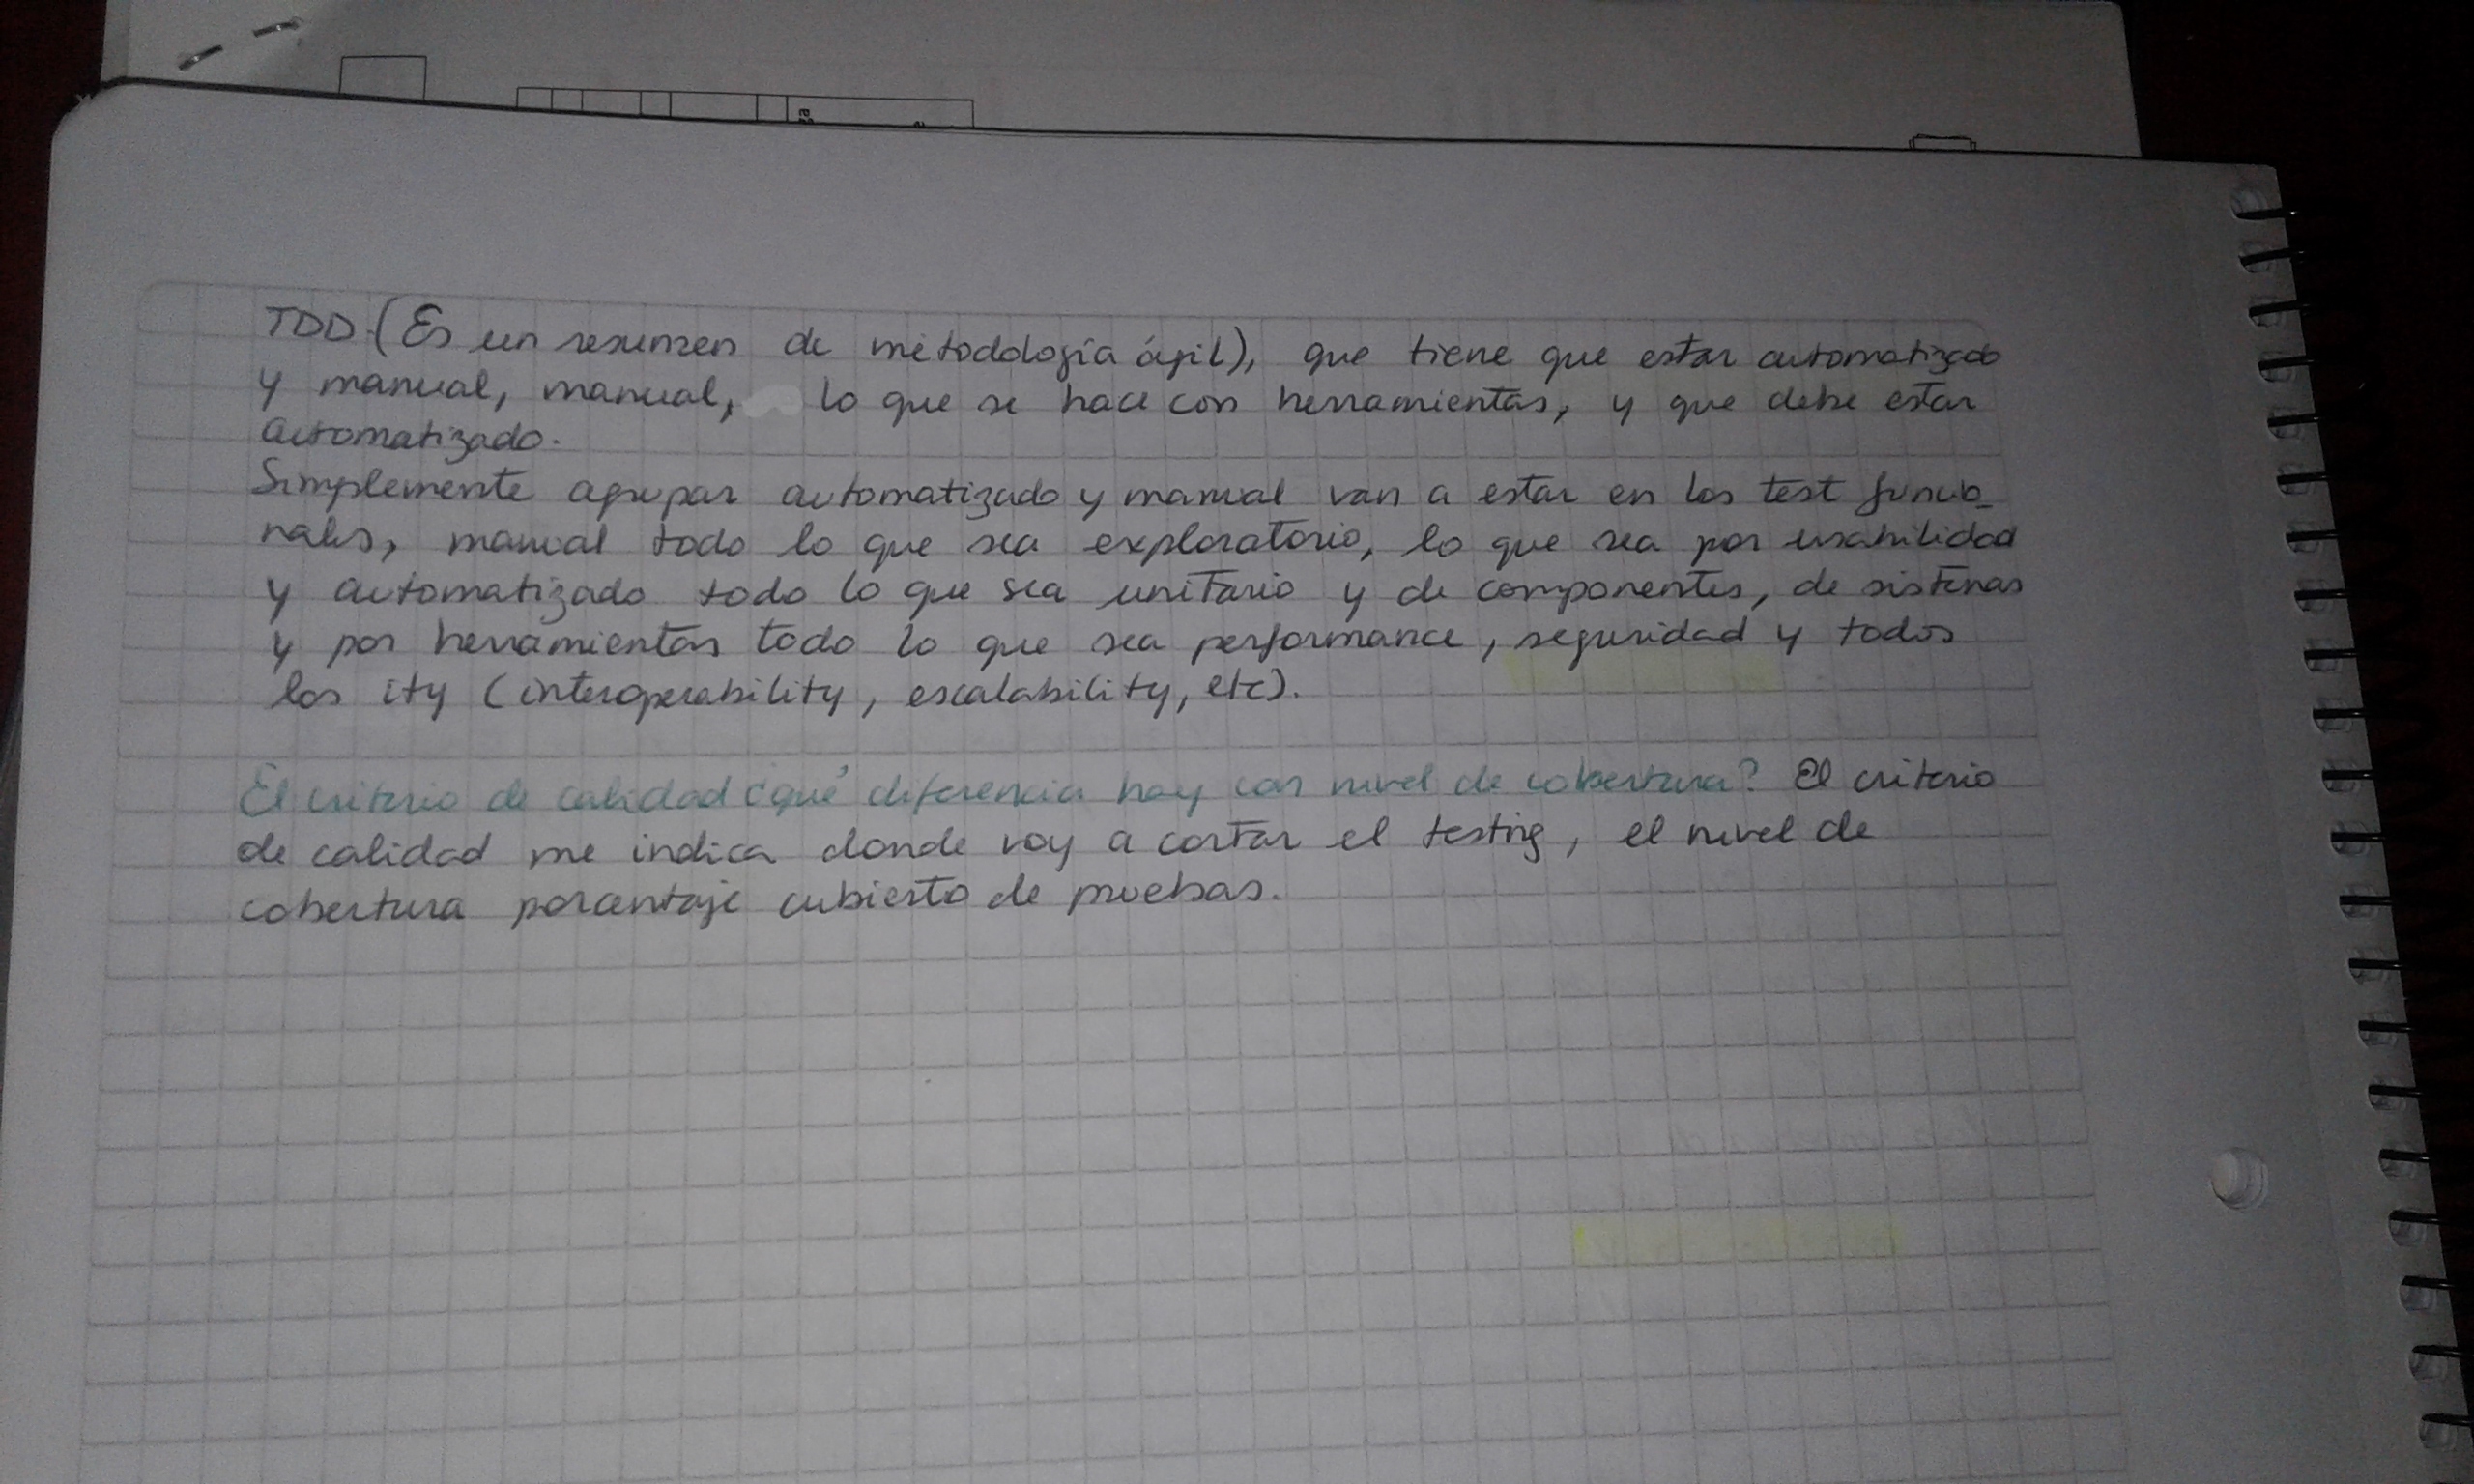 TDD (Es un resumen de metodología ágil), que tiene que estar automatizado
y manual, manual, lo que se hace con herramientas, y que debe estar
automatizado.
Simplemente agrupar automatizado y manual van a estar en los test funcio_
nales, manual todo lo que sea exploratorio, lo que sea por usabilidad
y automatizado todo lo que sea unitario y de componentes, de sistemas
y por herramientas todo lo que sea performance, seguridad y todos
los ity (interoperability, escalability, etc).
El criterio de calidad ¿qué diferencia hay con nivel de cobertura? El criterio
de calidad me indica donde voy a cortar el testing, el nivel de
cobertura porcentaje cubierto de pruebas.